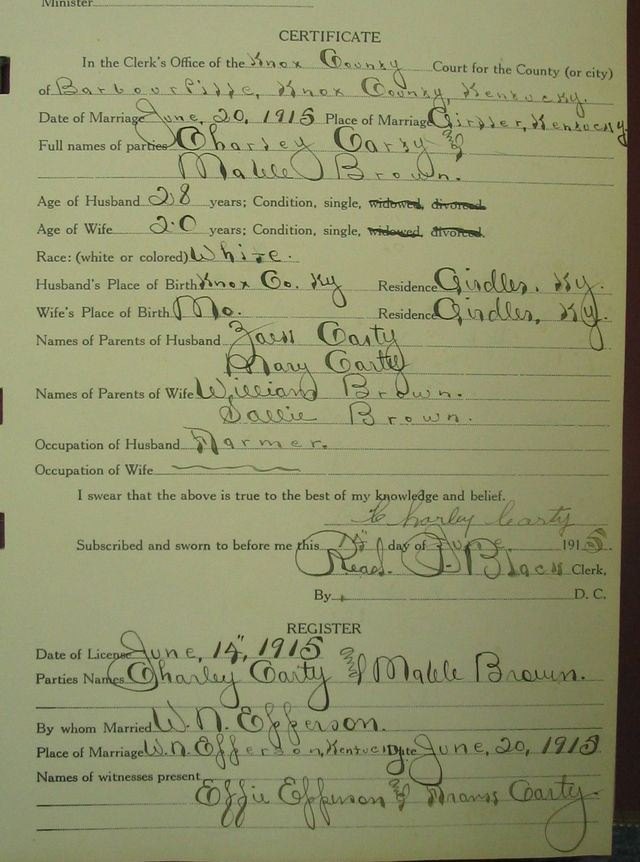 Minister
CERTIFICATE
In the Clerk's Office of the Knox County Court for the County (or city)
of Barbourville, Knox County, Kentucky.
Date of Marriage June, 20, 1915 Place of Marriage Girdler, Kentucky
Full names of parties Charley Carty &
Mable Brown.
Age of Husband 28 years; Condition, single, widowed, divorced.
Age of Wife 20 years; Condition, single, widowed, divorced.
Race: (white or colored) White.
Husband's Place of Birth Knox Co. Ky Residence Girdler, Ky.
Wife's Place of Birth Mo. Residence Girdler, Ky.
Names of Parents of Husband Carty
Mary Carty
Names of Parents of Wife William Brown.
Sallie Brown.
Occupation of Husband Farmer.
Occupation of Wife
I swear that the above is true to the best of my knowledge and belief.
Charley Carty
Subscribed and sworn to before me this day of June 1915.
Read. P. Black Clerk,
By D. C.
REGISTER
Date of License June, 14", 1915
Parties Names Charley Carty & Mable Brown.
By whom Married W. N. Epperson.
Place of Marriage W. N. Epperson, Kentucky Date June, 20, 1915
Names of witnesses present
Effie Epperson & Carty.